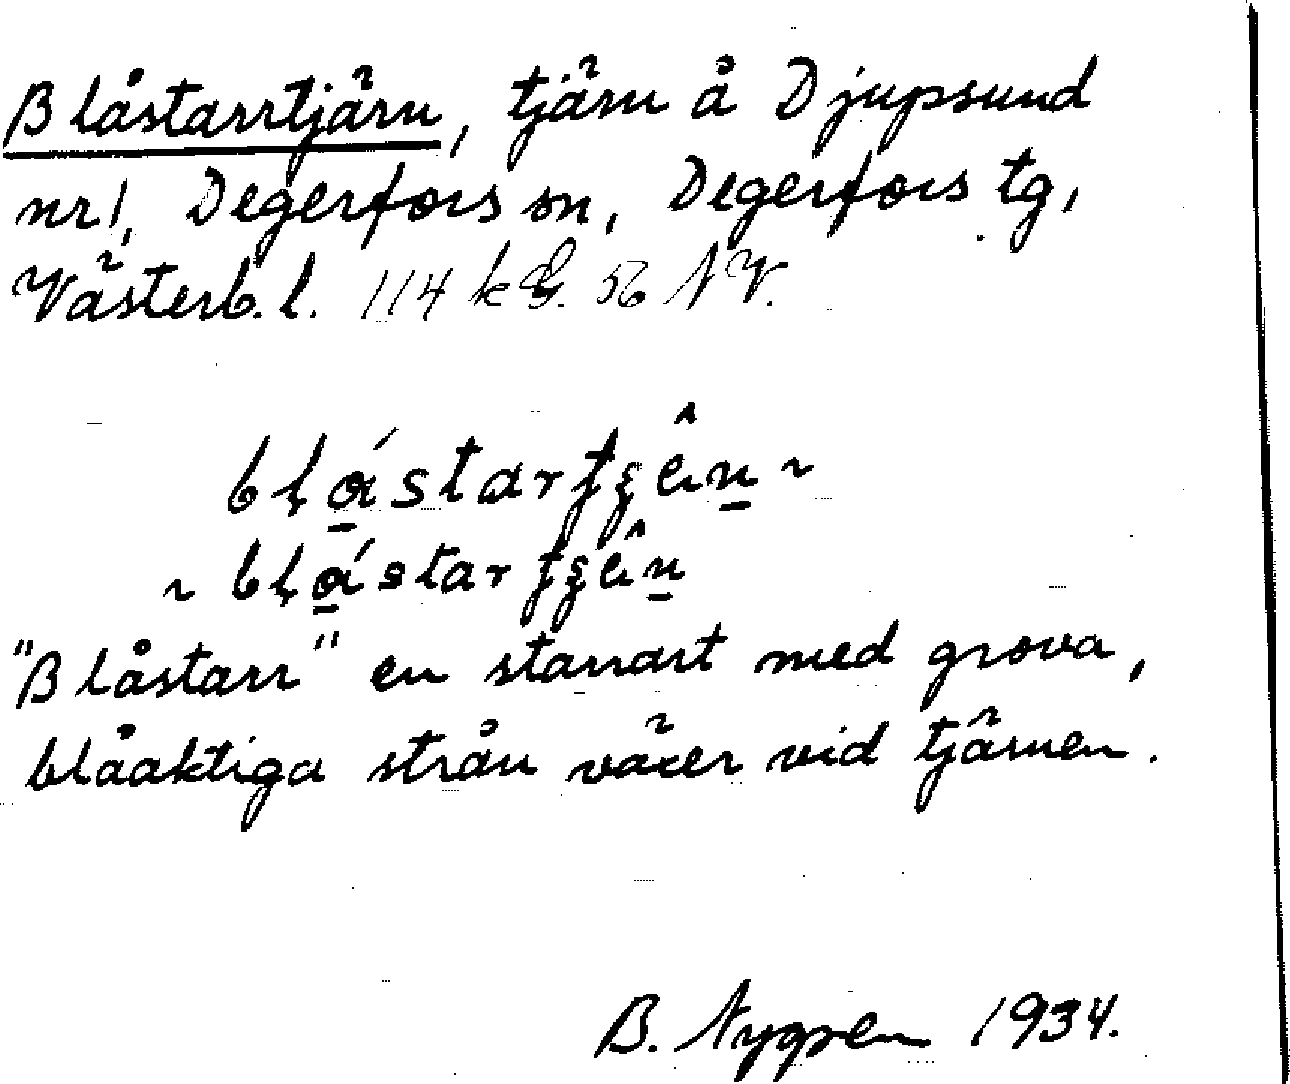 Blåstarrtjärn, tjärn å Djupsund
nr 1, Degerfors sn, Degerfors tg,
Västerb. l. 114 kG. 56 NV.
blǻstartʂên ~
~ blǻstartʂên
"Blåstarr" en starrart med grova,
blåaktiga strån växer vid tjärnen.
B. Nygren 1934.